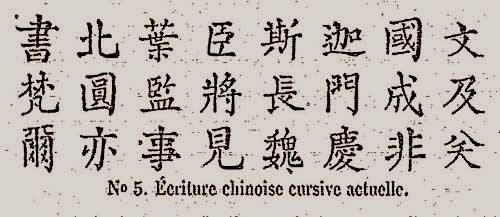 文及矣
國成非
迦門慶
斯長魏
臣將見
葉監事
北圓亦
書梵爾
No 5. Écriture chinoise cursive actuelle.